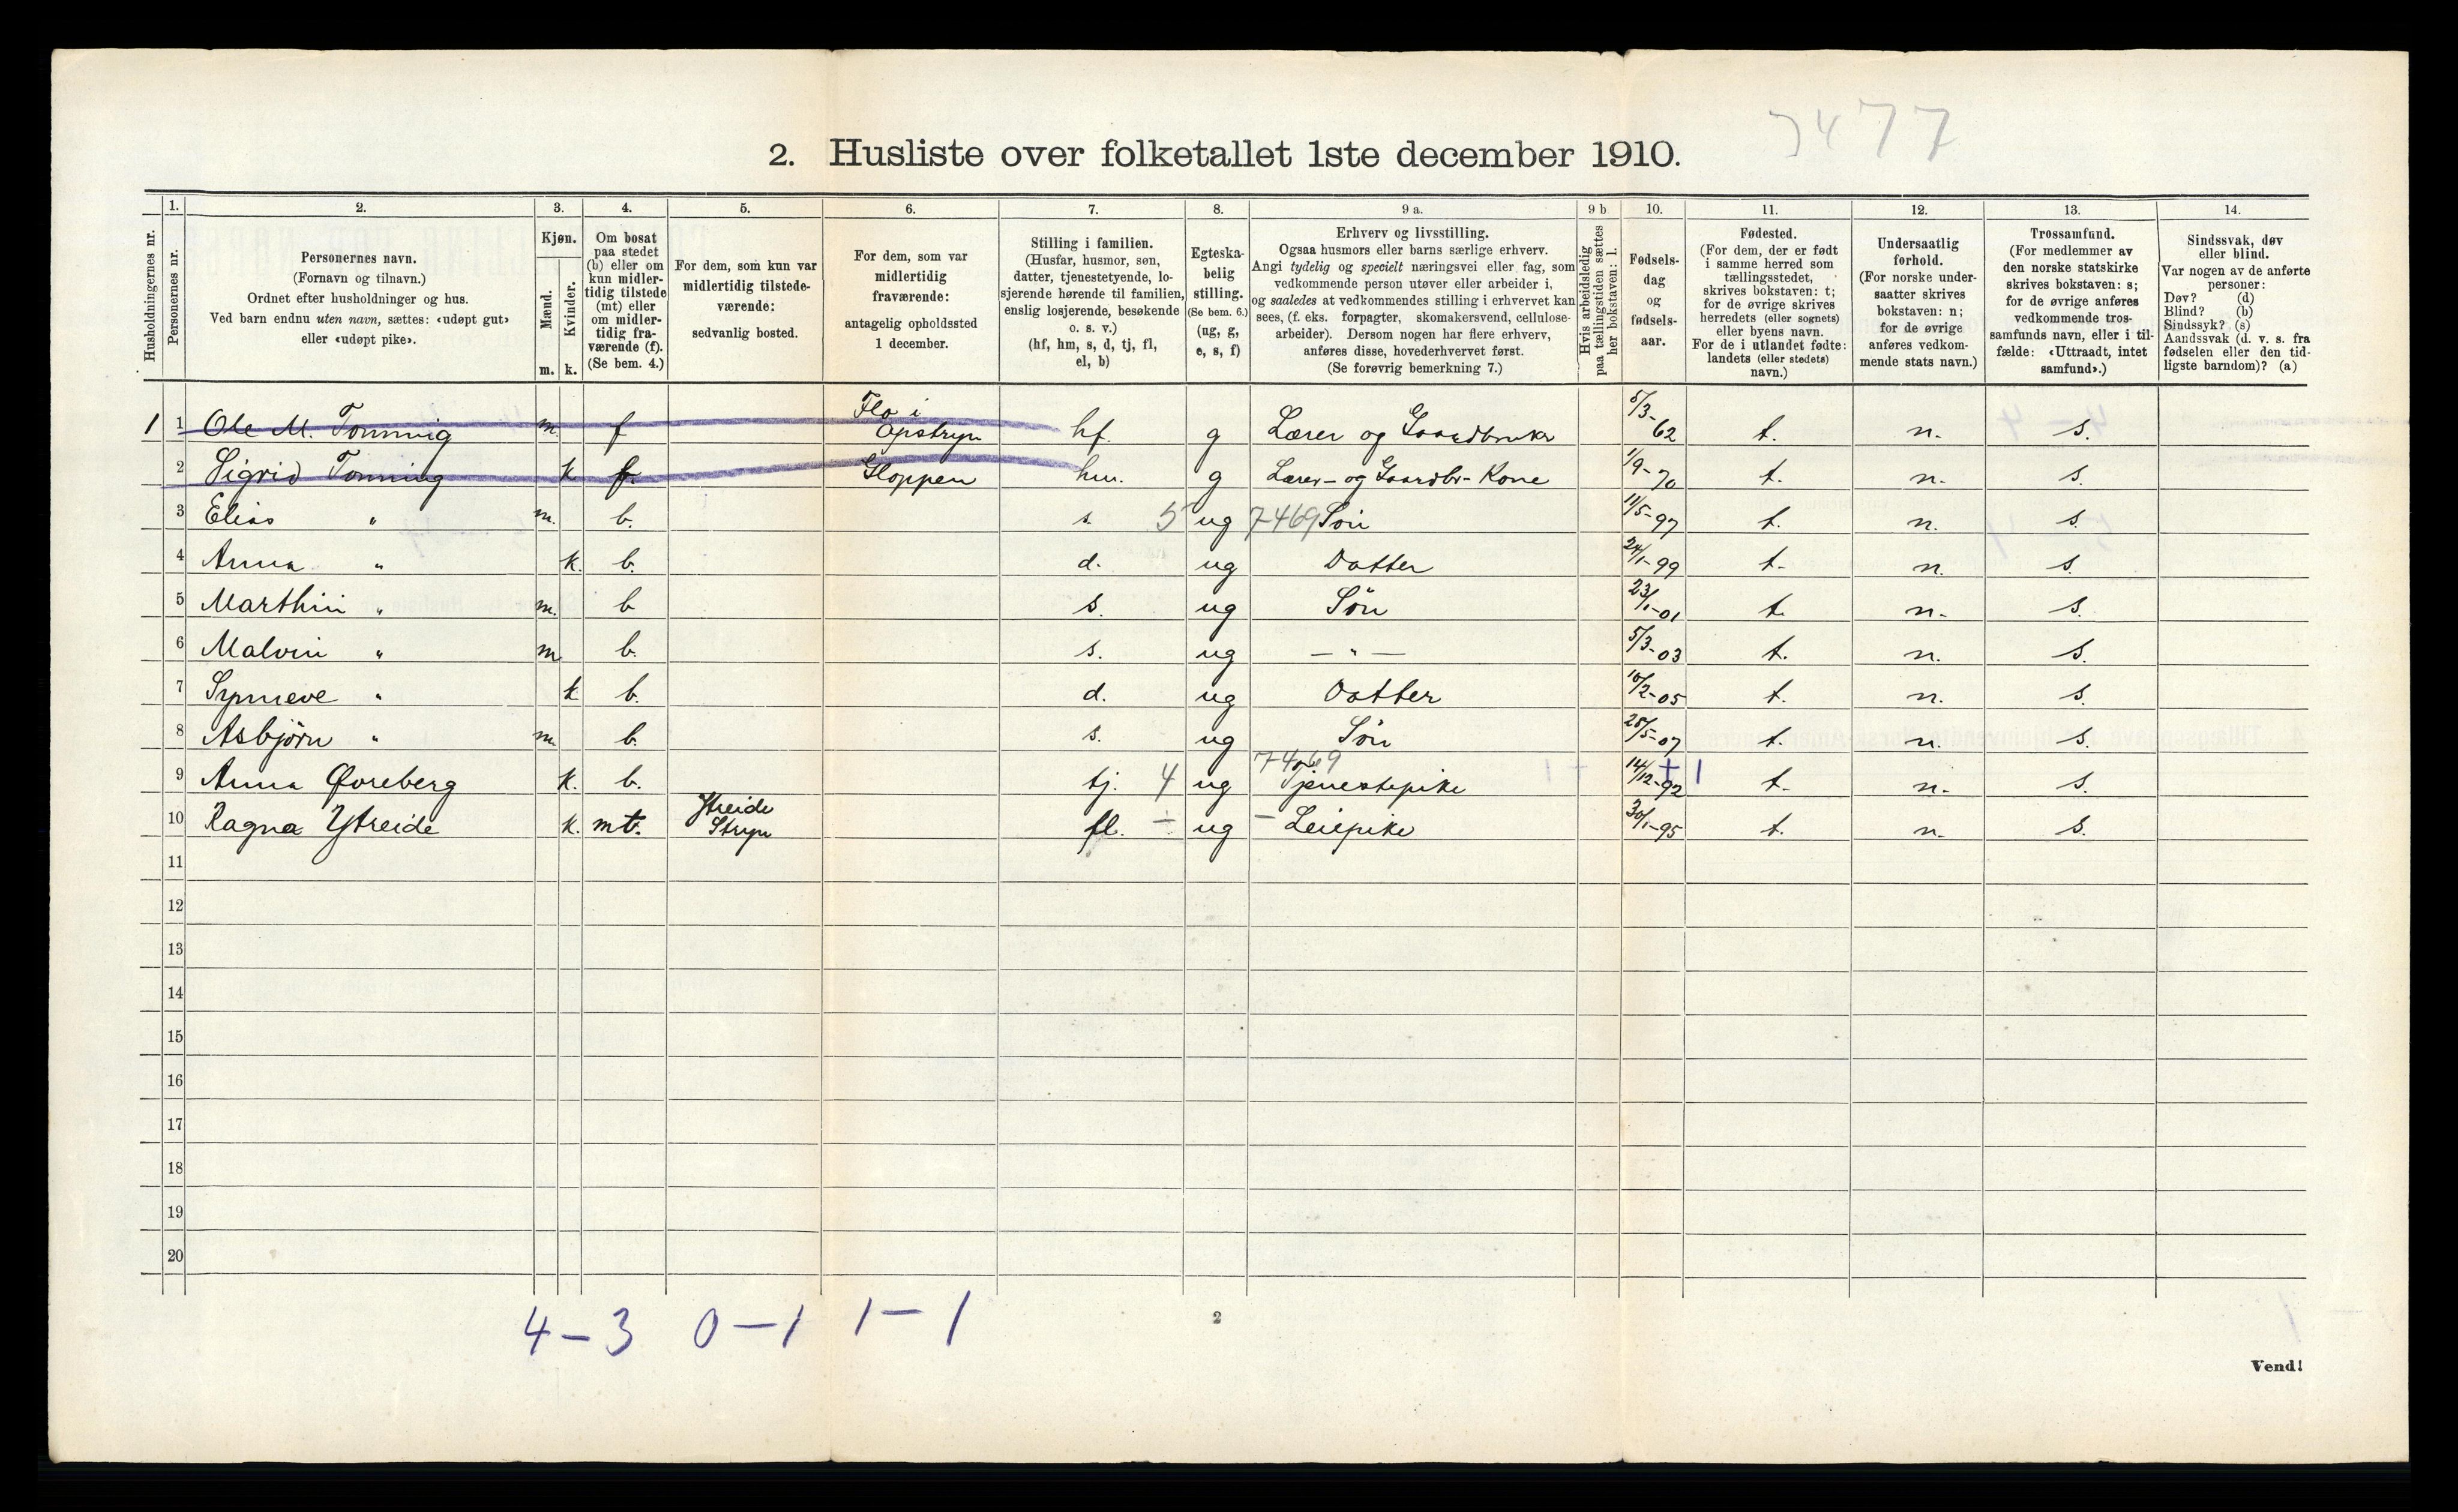 7477
2. Husliste over folketallet 1ste december 1910.
Husholdningernes nr.
1. Personernes nr.
2. Personernes navn. (Fornavn og tilnavn.) Ordnet efter husholdninger og hus. Ved barn endnu uten navn, sættes: «udøpt gut» eller «udøpt pike».
3. Kjøn. Mænd. m. Kvinder. k.
4. Om bosat paa stedet (b) eller om kun midlertidig tilstede (mt) eller om midlertidig fraværende (f). (Se bem. 4.)
5. For dem, som kun var midlertidig tilstedeværende: sedvanlig bosted.
6. For dem, som var midlertidig fraværende: antagelig opholdssted 1 december.
7. Stilling i familien. (Husfar, husmor, søn, datter, tjenestetyende, losjerende hørende til familien, enslig losjerende, besøkende o. s. v.) (hf, hm, s, d, tj, fl, el, b)
8. Egteskabelig stilling. (Se bem. 6.) (ug, g, e, s, f)
9 a. Erhverv og livsstilling. Ogsaa husmors eller barns særlige erhverv. Angi tydelig og specielt næringsvei eller fag, som vedkommende person utøver eller arbeider i, og saaledes at vedkommendes stilling i erhvervet kan sees, (f. eks. forpagter, skomakersvend, cellulosearbeider). Dersom nogen har flere erhverv, anføres disse, hovederhvervet først. (Se forøvrig bemerkning 7.)
9 b Hvis arbeidsledig paa tællingstiden sættes her bokstaven: l.
10. Fødselsdag og fødselsaar.
11. Fødested. (For dem, der er født i samme herred som tællingsstedet, skrives bokstaven: t; for de øvrige skrives herredets (eller sognets) eller byens navn. For de i utlandet fødte: landets (eller stedets) navn.)
12. Undersaatlig forhold. (For norske undersaatter skrives bokstaven: n; for de øvrige anføres vedkommende stats navn.)
13. Trossamfund. (For medlemmer av den norske statskirke skrives bokstaven: s; for de øvrige anføres vedkommende trossamfunds navn, eller i tilfælde: «Uttraadt, intet samfund».)
14. Sindssvak, døv eller blind. Var nogen av de anførte personer: Døv? (d) Blind? (b) Sindssyk? (s) Aandssvak (d. v. s. fra fødselen eller den tidligste barndom)? (a)
1 1 Ole M. Tonning m. f Flo i Opstryn hf. g Lærer og Gaardbruker 5/3-62 t. n. s.
2 Sigrid Tonning k f. Gloppen hm. g Lærer- og Gaardbr- Kone 1/9-70 t. n. s.
3 Elias " m. b. s. 5 ug 7469 Søn 11/5-97 t. n. s.
4 Anna " k. b. d. ug Datter 24/1-99 t- n. s.
5 Marthin " m. b s. ug Sön 23/1-01 t. n- s.
6 Malvin " m b. s. ug — " — 5/3-03 t. n. s.
7 Synneve " k b. d. ug Datter 10/2-05 t. n. s.
8 Asbjörn " m. b. s. ug Sön 25/5-07 t. n. s.
9 Anna Øvreberg k. b. tj. 4 ug 7469 Tjenestepike 14/12-92 t- n- s.
10 Ragna Ytreide k. mt. Ytreide Stryn fl. - ug - Leiepike 30/1-95 t. n. s.
11
12
13
14
15
16
17
18
19
20
4 – 3 0 – 1 1 – 1
2
Vend!